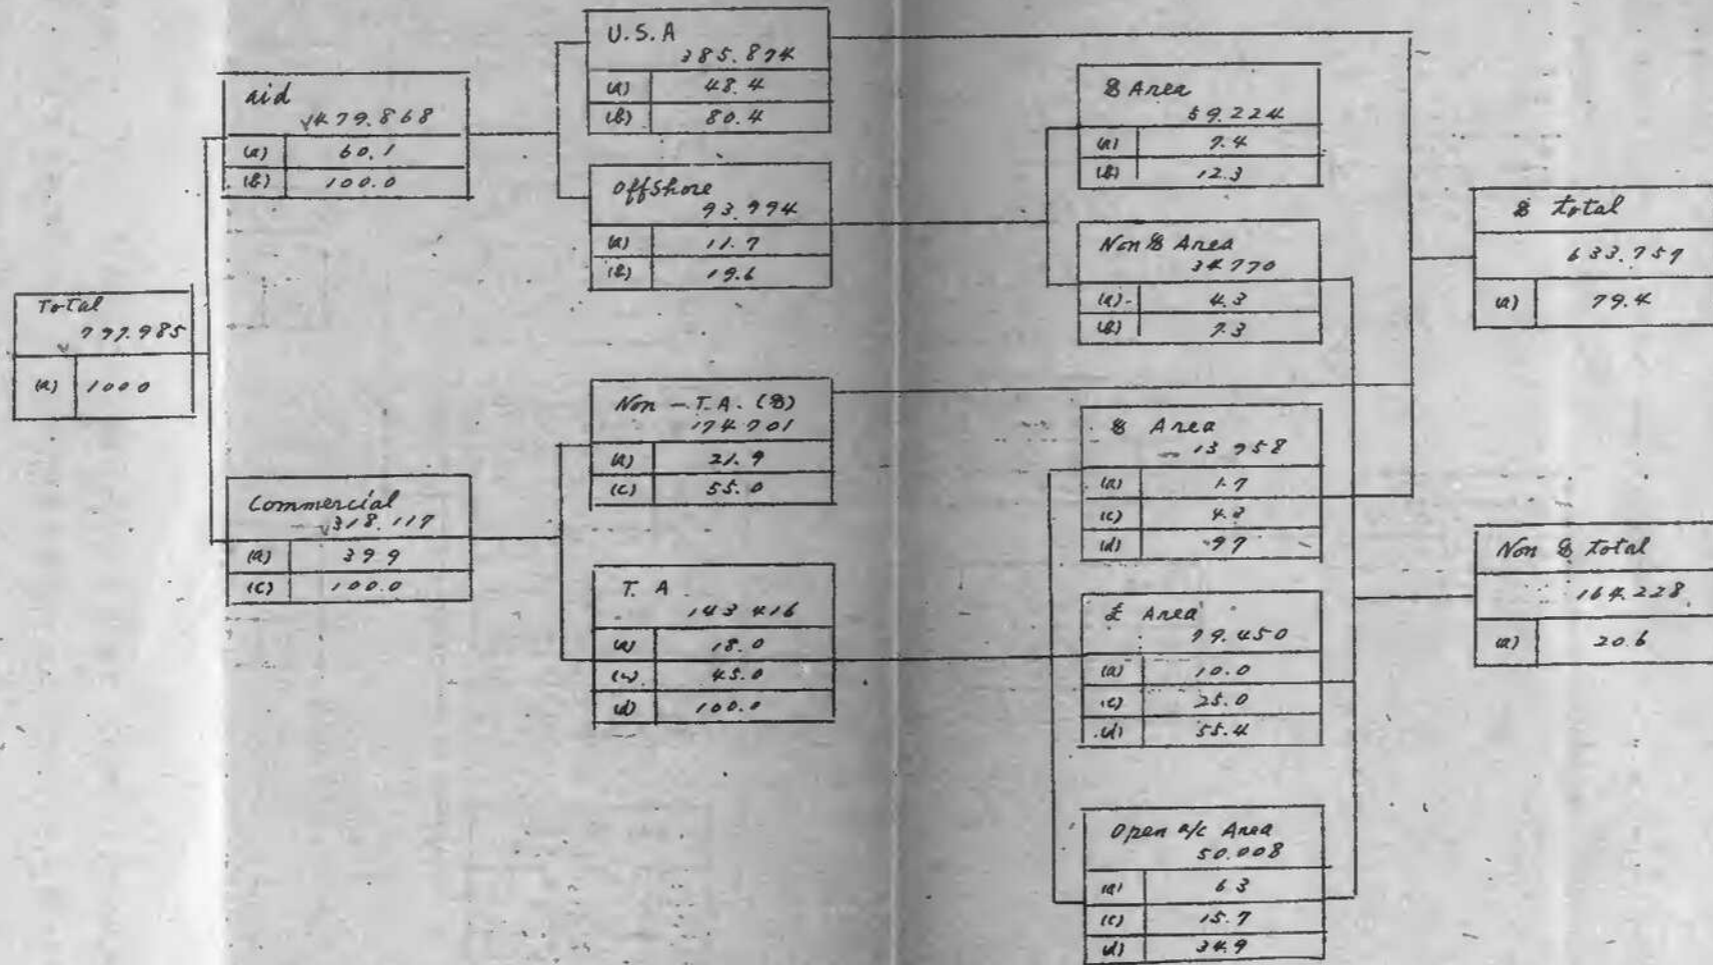 Total
797.985
(a) 100 0
aid
479.868
(a) 60.1
(b) 100.0
Commercial
318.117
(a) 39 9
(c) 100.0
U.S.A
385.874
(a) 48.4
(b) 80.4
Offshore
93.994
(a) 11.7
(b) 19.6
Non - T.A. ($)
174 701
(a) 21.9
(c) 55.0
T. A
143 416
(a) 18.0
(c) 45.0
(d) 100.0
$ Area
59.224
(a) 7.4
(b) 12.3
Non $ Area
34 770
(a) 4.3
(b) 7.3
$ Area
13 958
(a) 1.7
(c) 4.3
(d) 9 7
£ Area
79.450
(a) 10.0
(c) 25.0
(d) 55.4
Open a/c Area
50.008
(a) 6 3
(c) 15.7
(d) 34.9
$ total
633.757
(a) 79.4
Non $ total
164.228
(a) 20.6